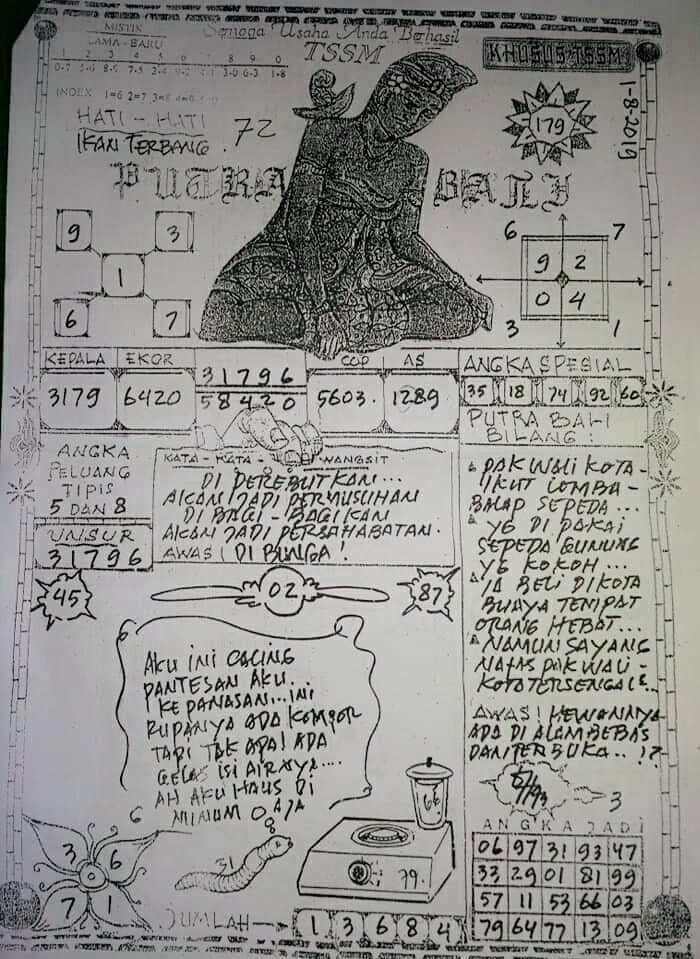 Semoga Usaha Anda Berhasil
TSSM
KHUSUS TSSM
1-8-2019
MISTIK
LAMA - BARU
1 2 3 4 5 6 8 9 0
INDEX 1=6 2=7
HATI - HATI
IKAN TERBANG . 72
179
PUTRA BALI
9 3
1
6 7
6 7
9 2
0 4
3 1
KEPALA EKOR COP AS
3179 6420 31796 5603. 1289
58420
ANGKA SPESIAL
35 18 74 92 60
ANGKA
PELUANG
TIPIS
5 DAN 8
UNSUR
31796
KATA - KATA - WANGSIT
DI PEREBUTKAN...
AKAN JADI PERMUSUHAN
DI BAGI - BAGIKAN
AKAN JADI PERSAHABATAN.
AWAS! DI BUNGA!
PUTRA BALI
BILANG :
PAK WALI KOTA -
IKUT LOMBA -
BALAP SEPEDA...
YG DI PAKAI
SEPEDA GUNUNG
YG KOKOH...
IA BELI DI KOTA
BUAYA TEMPAT
ORANG HEBAT...
NAMUN SAYANG
NAFAS PAK WALI -
KOTA TERSENGAL²..
AWAS! HEWANNYA
ADA DI ALAM BEBAS
DAN TERBUKA..!?
45 02 87
AKU INI CACING
PANTESAN AKU..
KEPANASAN...INI
RUPANYA ADA KOMPOR
TAPI TAK APA! ADA
GELAS ISI AIRNYA....
AH AKU HAUS DI
MINUM
6
8
31
66
79.
3
3 6
7 1
JUMLAH
1 3 6 8 4
ANGKA JADI
06 97 31 93 47
33 29 01 81 99
57 11 53 66 03
79 64 77 13 09